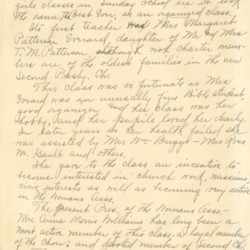 girls classes in Sunday School era it took
the name, the Best Ever, as an organized class.
Its first teacher was Mrs Margaret
Patterson Forward, daughter of Mr & Mrs
T. M. Patterson, although not charter mem-
bers are of the oldest families in the new
Second Presby. Ch.
This class was so fortunate as Mrs
was unusually fine Bible student
good organizer and her class was her
hobby, and her pupils loved her dearly.
In later years as her health failed she
was assisted by Mrs Wm Buggs - Mrs Ross
M. Gentle and others.
She gave to the class an incentive to
become interested in church work, missions,
civic interests as well as becoming very active
in the Womans Assn.
The present Pres. of the Womans Assn -
Mrs Anna Morris Williams has long been a
most active member of this class, a loyal member
of the Choir; and devoted member of Second